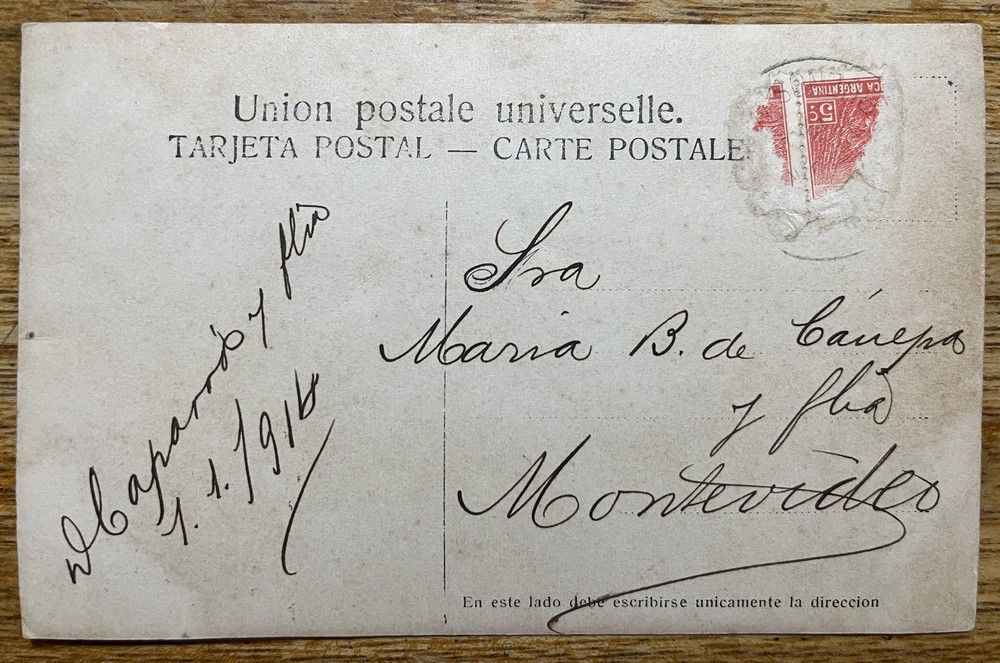 Union postale universelle.
TARJETA POSTAL — CARTE POSTALE
CA ARGENTINA
5c
Caparrós y flia
1.1./914
Sra
Maria B. de Cánepa
y flia
Montevideo
En este lado debe escribirse unicamente la direccion